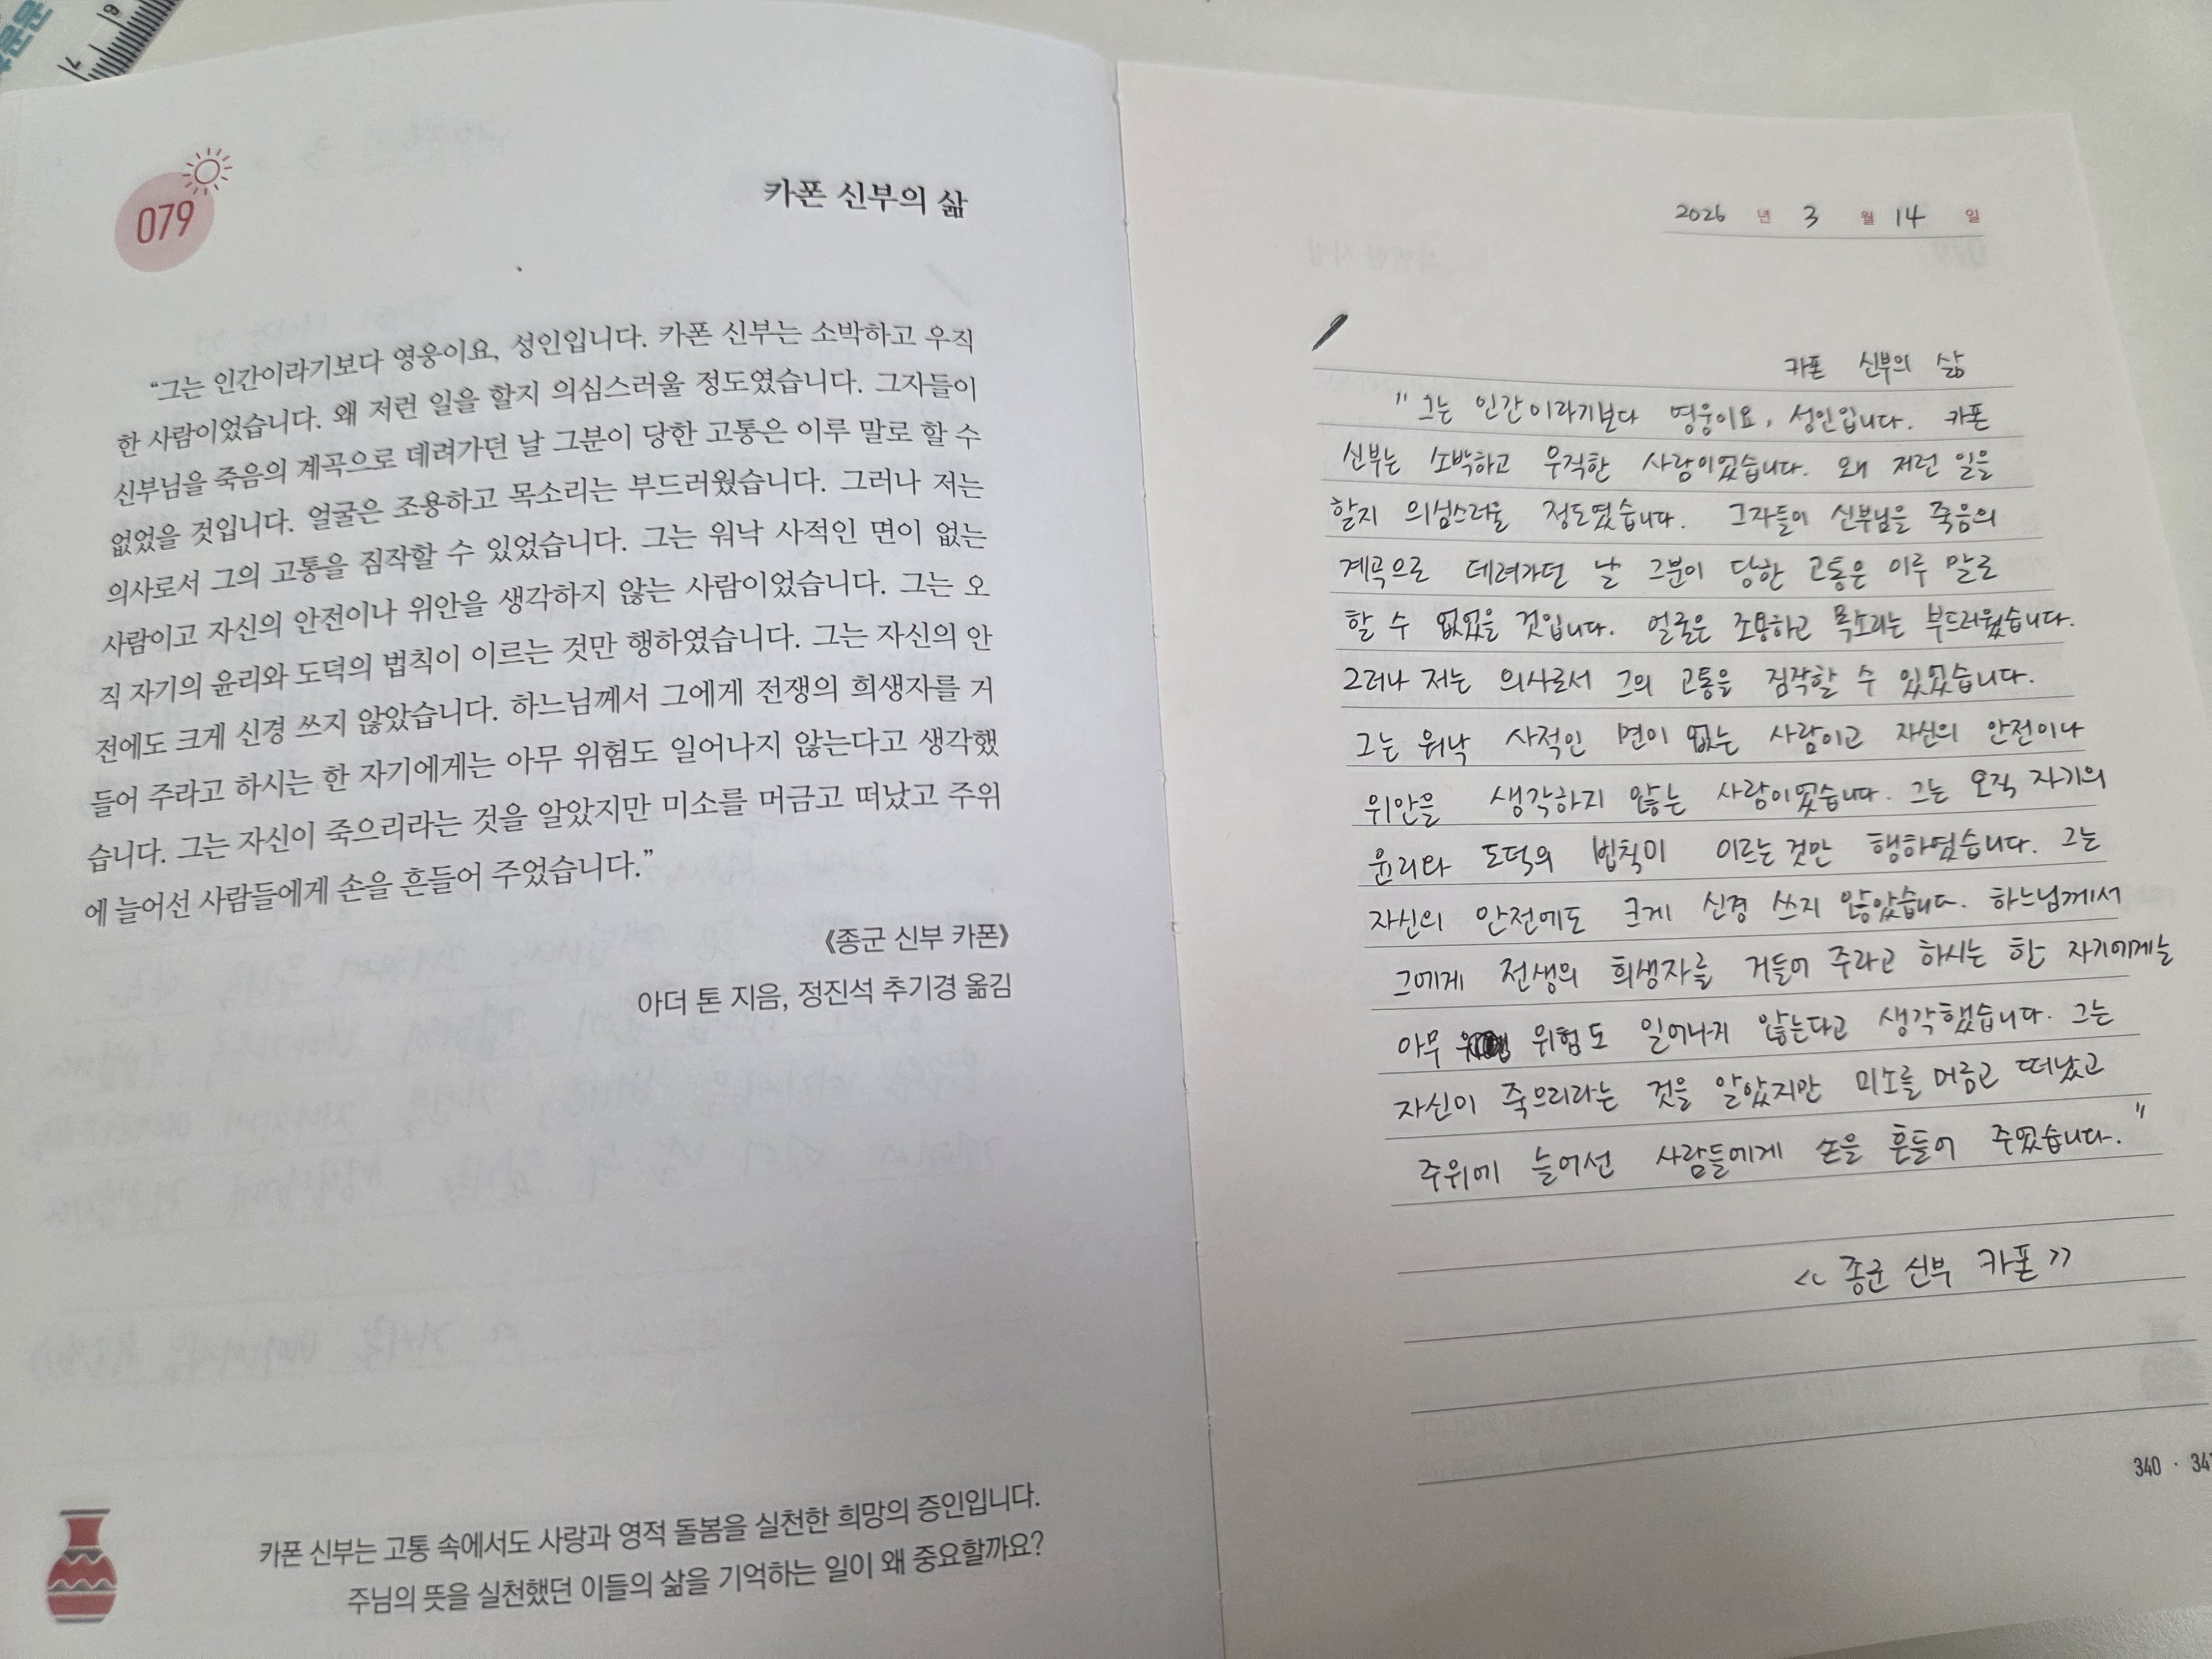 079
카폰 신부의 삶
“그는 인간이라기보다 영웅이요, 성인입니다. 카폰 신부는 소박하고 우직
한 사람이었습니다. 왜 저런 일을 할지 의심스러울 정도였습니다. 그자들이
신부님을 죽음의 계곡으로 데려가던 날 그분이 당한 고통은 이루 말로 할 수
없었을 것입니다. 얼굴은 조용하고 목소리는 부드러웠습니다. 그러나 저는
의사로서 그의 고통을 짐작할 수 있었습니다. 그는 워낙 사적인 면이 없는
사람이고 자신의 안전이나 위안을 생각하지 않는 사람이었습니다. 그는 오
직 자기의 윤리와 도덕의 법칙이 이르는 것만 행하였습니다. 그는 자신의 안
전에도 크게 신경 쓰지 않았습니다. 하느님께서 그에게 전쟁의 희생자를 거
들어 주라고 하시는 한 자기에게는 아무 위험도 일어나지 않는다고 생각했
습니다. 그는 자신이 죽으리라는 것을 알았지만 미소를 머금고 떠났고 주위
에 늘어선 사람들에게 손을 흔들어 주었습니다.”
《종군 신부 카폰》
아더 톤 지음, 정진석 추기경 옮김
카폰 신부는 고통 속에서도 사랑과 영적 돌봄을 실천한 희망의 증인입니다.
주님의 뜻을 실천했던 이들의 삶을 기억하는 일이 왜 중요할까요?
2026 년 3 월 14 일
카폰 신부의 삶
"그는 인간이라기보다 영웅이요, 성인입니다. 카폰
신부는 소박하고 우직한 사람이었습니다. 왜 저런 일을
할지 의심스러울 정도였습니다. 그자들이 신부님을 죽음의
계곡으로 데려가던 날 그분이 당한 고통은 이루 말로
할 수 없었을 것입니다. 얼굴은 조용하고 목소리는 부드러웠습니다.
그러나 저는 의사로서 그의 고통을 짐작할 수 있었습니다.
그는 워낙 사적인 면이 없는 사람이고 자신의 안전이나
위안을 생각하지 않는 사람이었습니다. 그는 오직 자기의
윤리와 도덕의 법칙이 이르는 것만 행하였습니다. 그는
자신의 안전에도 크게 신경 쓰지 않았습니다. 하느님께서
그에게 전생의 희생자를 거들어 주라고 하시는 한 자기에게는
아무 위험도 일어나지 않는다고 생각했습니다. 그는
자신이 죽으리라는 것을 알았지만 미소를 머금고 떠났고
주위에 늘어선 사람들에게 손을 흔들어 주었습니다."
<< 종군 신부 카폰 >>
340 ·